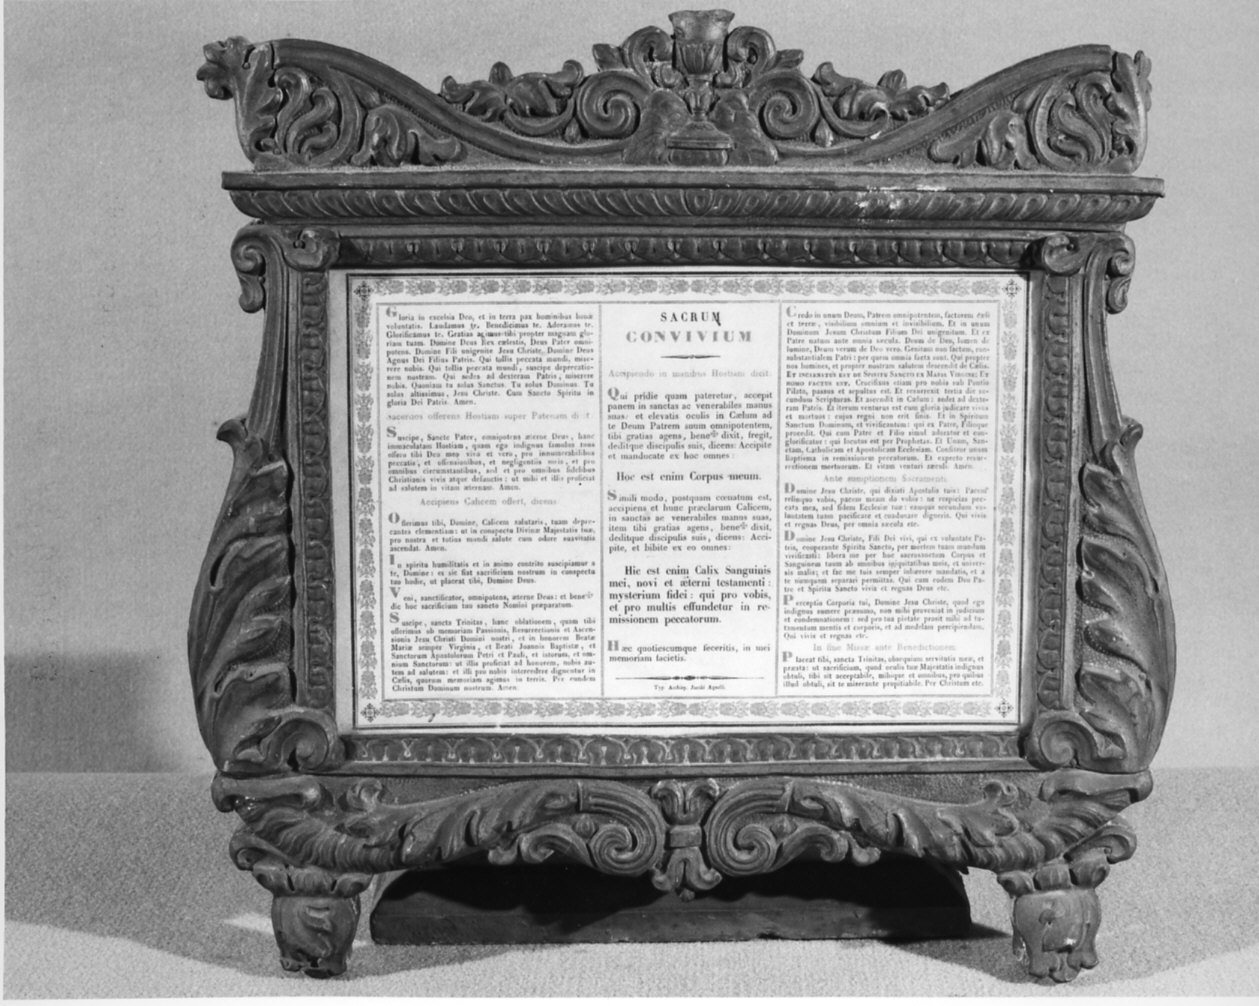 Gloria in excelsis Deo, et in terra pax hominibus bonæ
voluntatis. Laudamus te. Benedicimus te. Adoramus te.
Glorificamus te. Gratias agimus tibi propter magnam glo-
riam tuam. Domine Deus Rex cœlestis, Deus Pater omni-
potens. Domine Fili unigenite Jesu Christe. Domine Deus
Agnus Dei Filius Patris. Qui tollis peccata mundi, mise-
rere nobis. Qui tollis peccata mundi, suscipe deprecatio-
nem nostram. Qui sedes ad dexteram Patris, miserere
nobis. Quoniam tu solus Sanctus. Tu solus Dominus. Tu
solus altissimus, Jesu Christe. Cum Sancto Spiritu in
gloria Dei Patris. Amen.
sacerdos offerens Hostiam super Patenam di t.
Suscipe, Sancte Pater, omnipotens æterne Deus, hanc
immaculatam Hostiam, quam ego indignus famulus tuus
offero tibi Deo meo vivo et vero, pro innumerabilibus
peccatis, et offensionibus, et negligentiis meis, et pro
omnibus circumstantibus, sed et pro omnibus fidelibus
Christianis vivis atque defunctis: ut mihi et illis proficiat
ad salutem in vitam æternam. Amen.
Accipiens Calicem offert, dicens
Offerimus tibi, Domine, Calicem salutaris, tuam depre-
cantes clementiam: ut in conspectu Divinæ Majestatis tuæ,
pro nostra et totius mundi salute cum odore suavitatis
ascendat. Amen.
In spiritu humilitatis et in animo contrito suscipiamur a
te, Domine: et sic fiat sacrificium nostrum in conspectu
tuo hodie, ut placeat tibi, Domine Deus.
Veni, sanctificator, omnipotens, æterne Deus: et bene✠
dic hoc sacrificium tuo sancto Nomini præparatum.
Suscipe, sancta Trinitas, hanc oblationem, quam tibi
offerimus ob memoriam Passionis, Resurrectionis et Ascen-
sionis Jesu Christi Domini nostri, et in honorem Beatæ
Mariæ semper Virginis, et Beati Joannis Baptistæ, et
Sanctorum Apostolorum Petri et Pauli, et istorum, et om-
nium Sanctorum: ut illis proficiat ad honorem, nobis au-
tem ad salutem: et illi pro nobis intercedere dignentur in
Cœlis, quorum memoriam agimus in terris. Per eundem
Christum Dominum nostrum. Amen.
SACRUM
CONVIVIUM
Accipiendo in manibus Hostiam dicit.
Qui pridie quam pateretur, accepit
panem in sanctas ac venerabiles manus
suas: et elevatis oculis in Cælum ad
te Deum Patrem suum omnipotentem,
tibi gratias agens, bene✠dixit, fregit,
deditque discipulis suis, dicens: Accipite
et manducate ex hoc omnes:
Hoc est enim Corpus meum.
Simili modo, postquam cœnatum est,
accipiens et hunc præclarum Calicem,
in sanctas ac venerabiles manus suas,
item tibi gratias agens, bene✠dixit,
deditque discipulis suis, dicens: Acci-
pite, et bibite ex eo omnes:
Hic est enim Calix Sanguinis
mei, novi et æterni testamenti:
mysterium fidei: qui pro vobis,
et pro multis effundetur in re-
missionem peccatorum.
Hæc quotiescumque feceritis, in mei
memoriam facietis.
Typ. Archiep. Jacobi Agnelli.
Credo in unum Deum, Patrem omnipotentem, factorem cœli
et terræ, visibilium omnium et invisibilium. Et in unum
Dominum Jesum Christum Filium Dei unigenitum. Et ex
Patre natum ante omnia sæcula. Deum de Deo, lumen de
lumine, Deum verum de Deo vero. Genitum non factum, con-
substantialem Patri: per quem omnia facta sunt. Qui propter
nos homines, et propter nostram salutem descendit de Cœlis.
ET INCARNATUS EST DE SPIRITU SANCTO EX MARIA VIRGINE: ET
HOMO FACTUS EST. Crucifixus etiam pro nobis sub Pontio
Pilato, passus et sepultus est. Et resurrexit tertia die se-
cundum Scripturas. Et ascendit in Cœlum: sedet ad dexte-
ram Patris. Et iterum venturus est cum gloria judicare vivos
et mortuos: cujus regni non erit finis. Et in Spiritum
Sanctum Dominum, et vivificantem: qui ex Patre, Filioque
procedit. Qui cum Patre et Filio simul adoratur et con-
glorificatur: qui locutus est per Prophetas. Et Unam, San-
ctam, Catholicam et Apostolicam Ecclesiam. Confiteor unum
Baptisma in remissionem peccatorum. Et expecto resur-
rectionem mortuorum. Et vitam venturi sæculi. Amen.
Ante sumptionem Sacramenti.
Domine Jesu Christe, qui dixisti Apostolis tuis: Pacem
relinquo vobis, pacem meam do vobis: ne respicias pec-
cata mea, sed fidem Ecclesiæ tuæ: eamque secundum vo-
luntatem tuam pacificare et coadunare digneris. Qui vivis
et regnas Deus, per omnia sæcula etc.
Domine Jesu Christe, Fili Dei vivi, qui ex voluntate Pa-
tris, cooperante Spiritu Sancto, per mortem tuam mundum
vivificasti: libera me per hoc sacrosanctum Corpus et
Sanguinem tuum ab omnibus iniquitatibus meis, et univer-
sis malis; et fac me tuis semper inhærere mandatis, et a
te nunquam separari permittas. Qui cum eodem Deo Pa-
tre et Spiritu Sancto vivis et regnas Deus etc.
Perceptio Corporis tui, Domine Jesu Christe, quod ego
indignus sumere præsumo, non mihi proveniat in judicium
et condemnationem: sed pro tua pietate prosit mihi ad tu-
tamentum mentis et corporis, et ad medelam percipiendam.
Qui vivis et regnas etc.
In fine Missæ ante Benedictionem
Placeat tibi, sancta Trinitas, obsequium servitutis meæ, et
præsta: ut sacrificium, quod oculis tuæ Majestatis indignus
obtuli, tibi sit acceptabile, mihique et omnibus, pro quibus
illud obtuli, sit te miserante propitiabile. Per Christum etc.